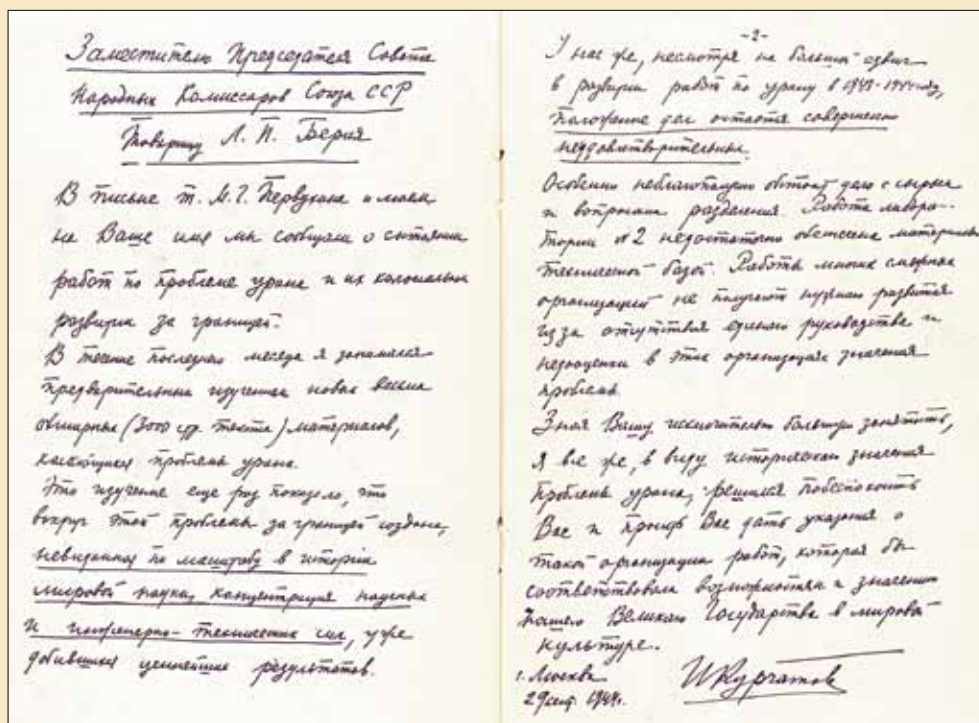 Заместителю Председателя Совета
Народных Комиссаров Союза ССР
Товарищу Л. П. Берия
В письме т. М. Г. Первухина и моем
на Ваше имя мы сообщали о состоянии
работ по проблеме урана и их колоссальном
развитии за границей.
В течение последнего месяца я занимался
предварительным изучением новых весьма
обширных (3000 стр. текста) материалов,
касающихся проблемы урана.
Это изучение еще раз показало, что
вокруг этой проблемы за границей создана,
невиданная по масштабу в истории
мировой науки, концентрация научных
и инженерно-технических сил, уже
добившихся ценнейших результатов.
-2-
У нас же, несмотря на большой сдвиг
в развитии работ по урану в 1943-1944 году,
положение дел остается совершенно
неудовлетворительным.
Особенно неблагополучно обстоит дело с сырьем
и вопросами разделения. Работа лабора-
тории №2 недостаточно обеспечена материально-
технической базой. Работы многих смежных
организаций не получают нужного развития
из за отсутствия единого руководства и
недооценки в этих организациях значения
проблемы.
Зная Вашу исключительно большую занятость,
я все же, в виду исторического значения
проблемы урана, решился побеспокоить
Вас и просить Вас дать указания о
такой организации работ, которая бы
соответствовала возможностям и значению
нашего Великого Государства в мировой
культуре.
г. Москва
29 сент. 1944г.
ИКурчатов